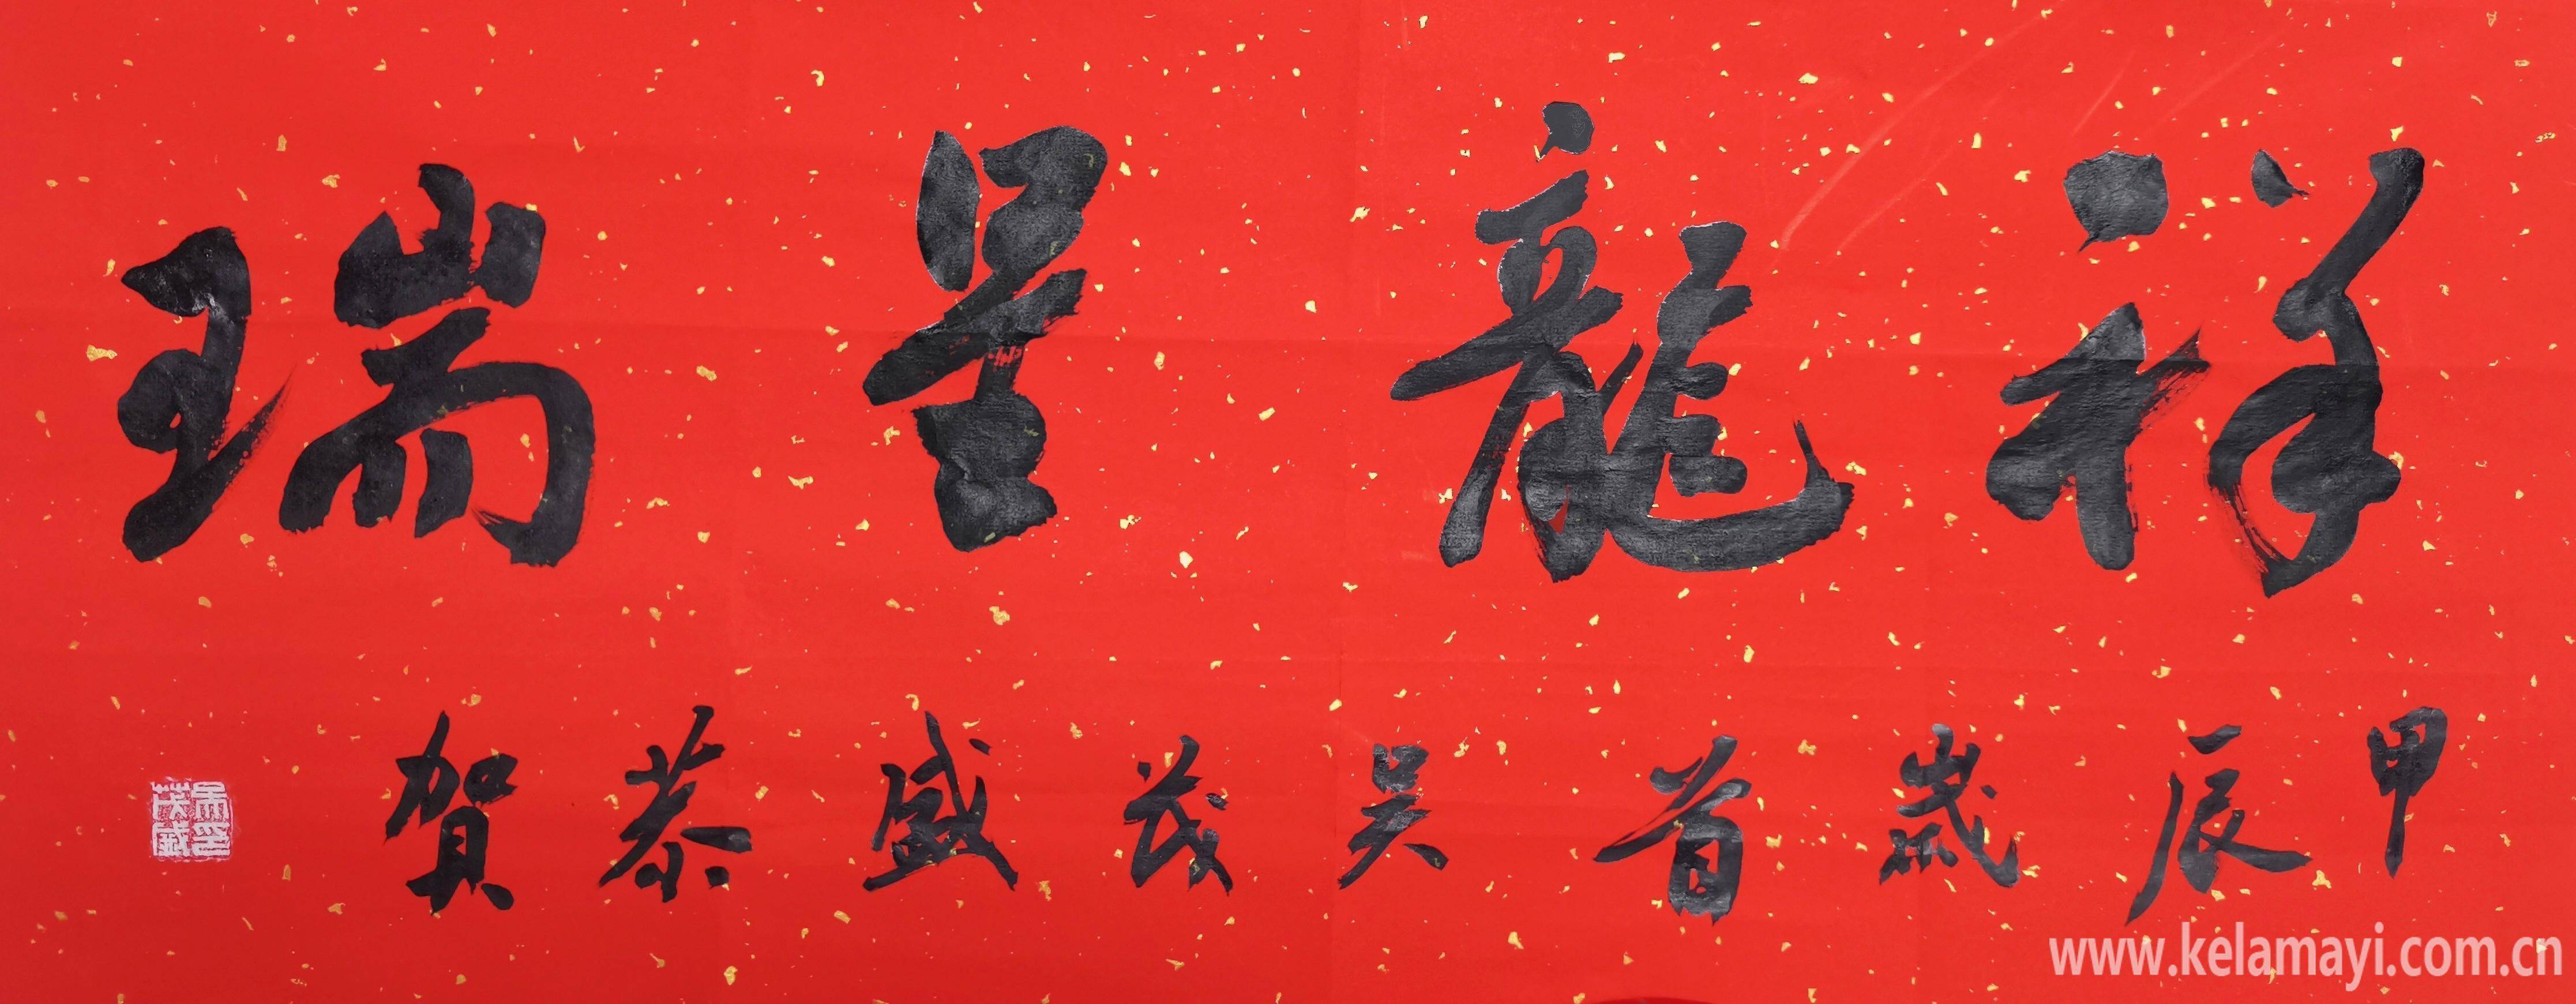 祥龍呈瑞
甲辰歲首吴茂盛恭賀
吴茂盛印
www.kelamayi.com.cn